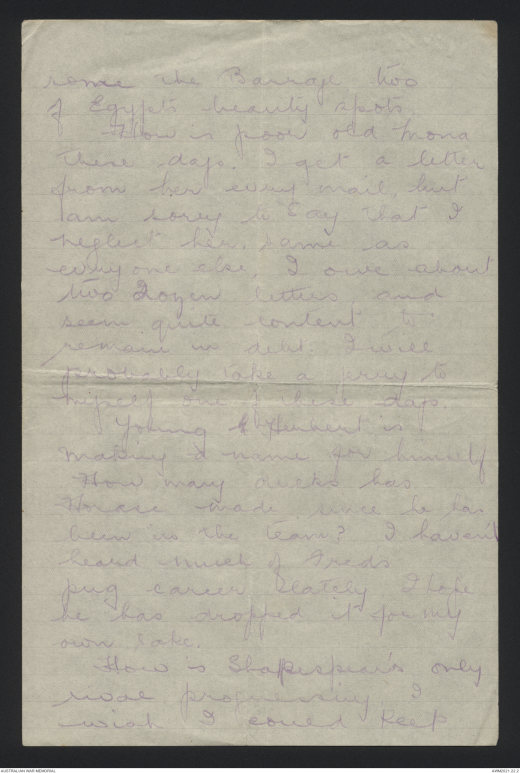 some the Barrage two
of Egypt's beauty spots
How is poor old Mona
these days. I get a letter
from her every mail, but
I am sorry to say that I
neglect her, same as
everyone else, I owe about
two dozen letters, and
seem quite content to
remain in debt. I will
probably take a jerry to
myself one of these days.
Young Herbert is
making a name for himself
How many ducks has
Horace made since he has
been in the team? I haven't
heard much of Freds
pug career lately I hope
he has dropped it for my
own sake.
How is Shakespear's only
rival progressing I
wish I could keep
AUSTRALIAN WAR MEMORIAL